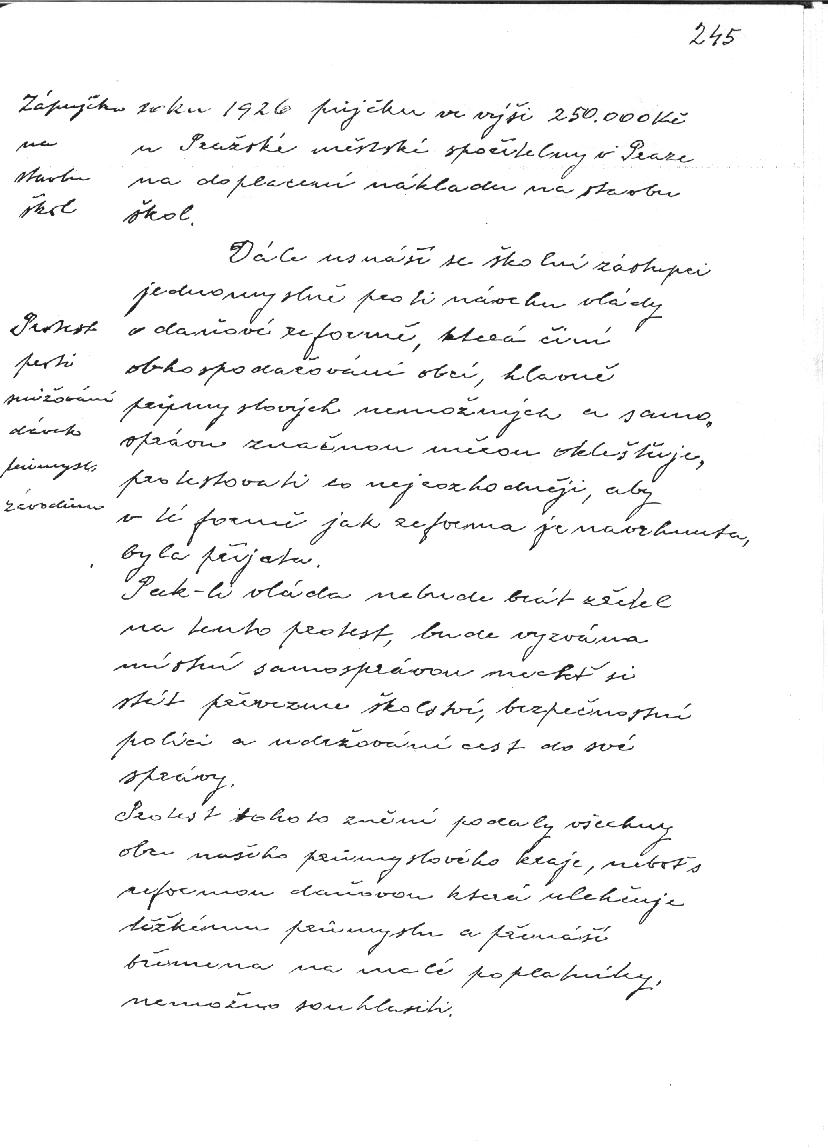 245
Zápujčka roku 1926 půjčku ve výši 250.000 Kč
na u Pražské městské spořitelny v Praze
stavbu na doplacení nákladu na stavbu
škol škol.
Dále usnáší se školní zástupci
jednomyslně proti návrhu vlády
Protest o daňové reformě, která činí
proti obhospodařování obcí, hlavně
snižování průmyslových nemožných a samo-
dávek správu značnou měrou oklešťuje,
průmysl. protestovati co nejrozhodněji, aby
závodům v té formě jak reforma je navrhnuta,
byla přijata.
Pak-li vláda nebude brát zřetel
na tento protest, bude vyzvána
místní samosprávou nechť si
stát převezme školství, bezpečnostní
polici a udržování cest do své
správy.
Protest tohoto znění podaly všechny
obce našeho průmyslového kraje, neboť s
reformou daňovou která ulehčuje
těžkému průmyslu a přenáší
břemena na malé poplatníky,
nemožno souhlasiti.